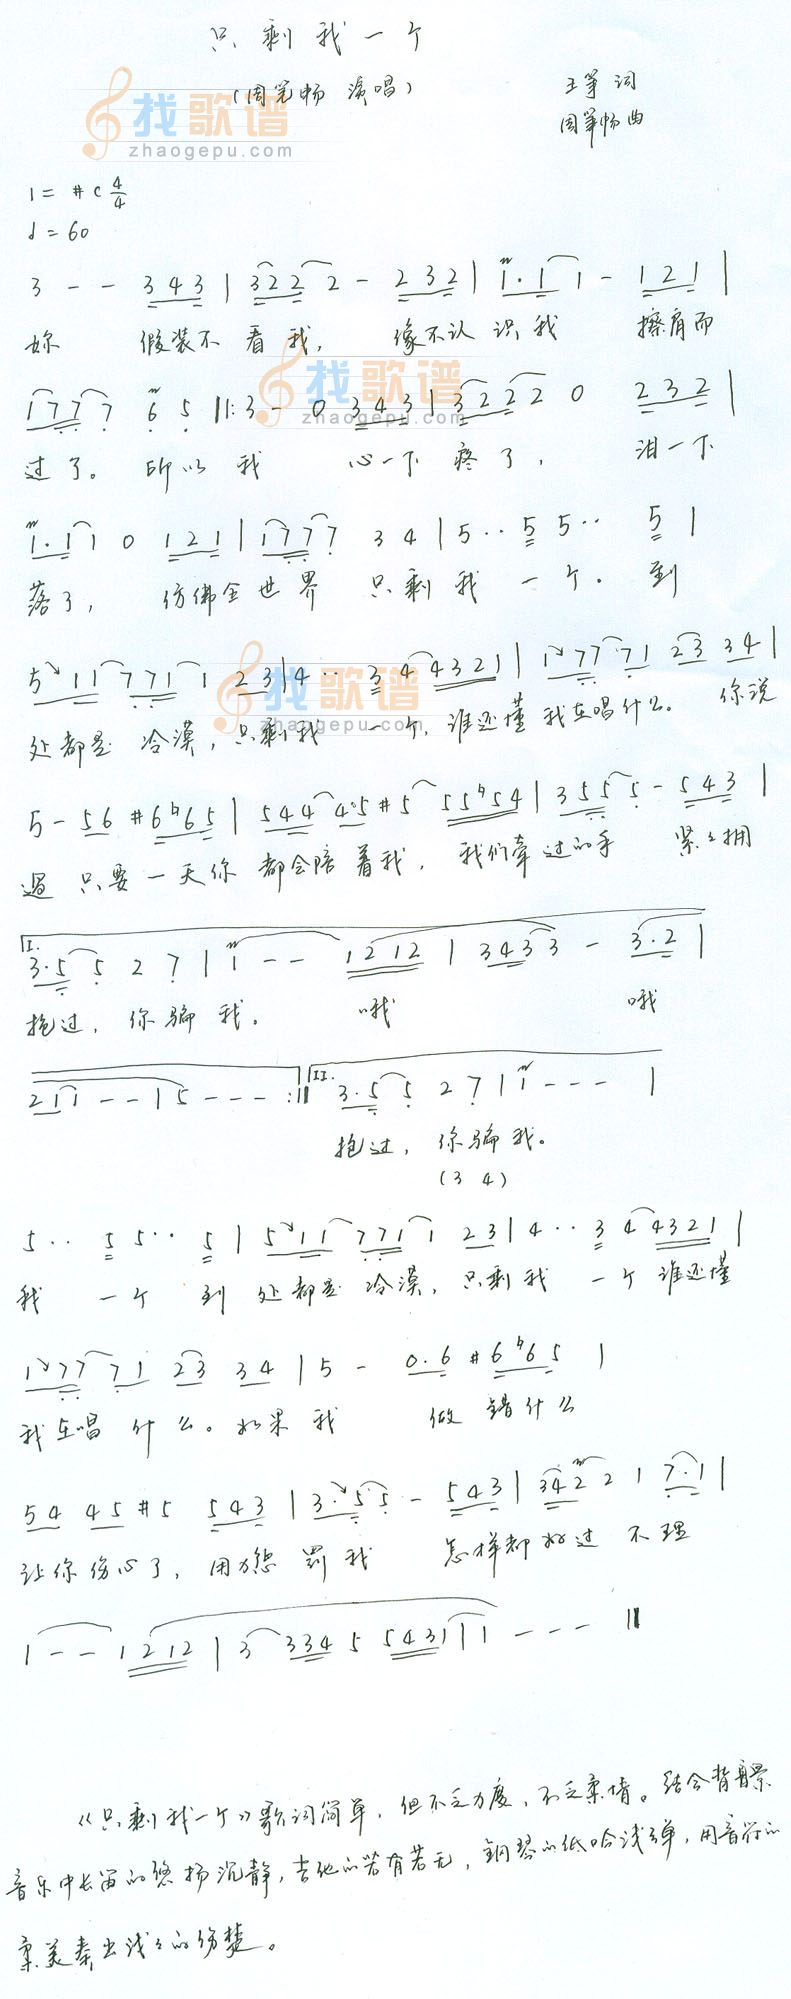 只剩我一个
(周笔畅 演唱)
王筝 词
周笔畅 曲
找歌谱
zhaogepu.com
1=#C 4/4
♩=60
3 - - 343 | 322 2 - 232 | 1·1 1 - 121 |
妳 假装不看我, 像不认识我 擦肩而
找歌谱
zhaogepu.com
177 7 6 5 ||: 3 - 0 343 | 322 2 0 232 |
过了。所以我 心一下疼了, 泪一下
1·1 1 0 121 | 177 7 3 4 | 5·· 5 5·· 5 |
落了, 仿佛全世界 只剩我一个。到
找歌谱
zhaogepu.com
5 11 771 1 23 | 4·· 3 4 4321 | 177 71 23 34 |
处都是冷漠,只剩我一个,谁还懂我在唱什么。你说
5 - 56 #6♮65 | 544 45 #5 55♮54 | 355 5 - 543 |
过只要一天你都会陪着我,我们牵过的手 紧紧拥
I.
3·5 5 2 7 | 1 - - 1212 | 343 3 - 3·2 |
抱过,你骗我。 哦 哦
21 1 - - | 5 - - - :|| II. 3·5 5 2 7 | 1 - - - |
抱过,你骗我。
(3 4)
5·· 5 5·· 5 | 5 11 771 1 23 | 4·· 3 4 4321 |
我 一个 到处都是冷漠,只剩我一个 谁还懂
177 71 23 34 | 5 - 0·6 #6♮65 |
我在唱什么。如果我 做错什么
54 45 #5 543 | 3·5 5 - 543 | 342 2 1 7·1 |
让你伤心了,用力惩罚我 怎样都好过不理
1 - - 1212 | 3 334 5 5431 | 1 - - - ||
《只剩我一个》歌词简单,但不乏力度,不乏柔情。结合背景
音乐中长笛的悠扬沉静,吉他的若有若无,钢琴的低吟浅弹,用音符的
柔美奏出浅浅的伤楚。